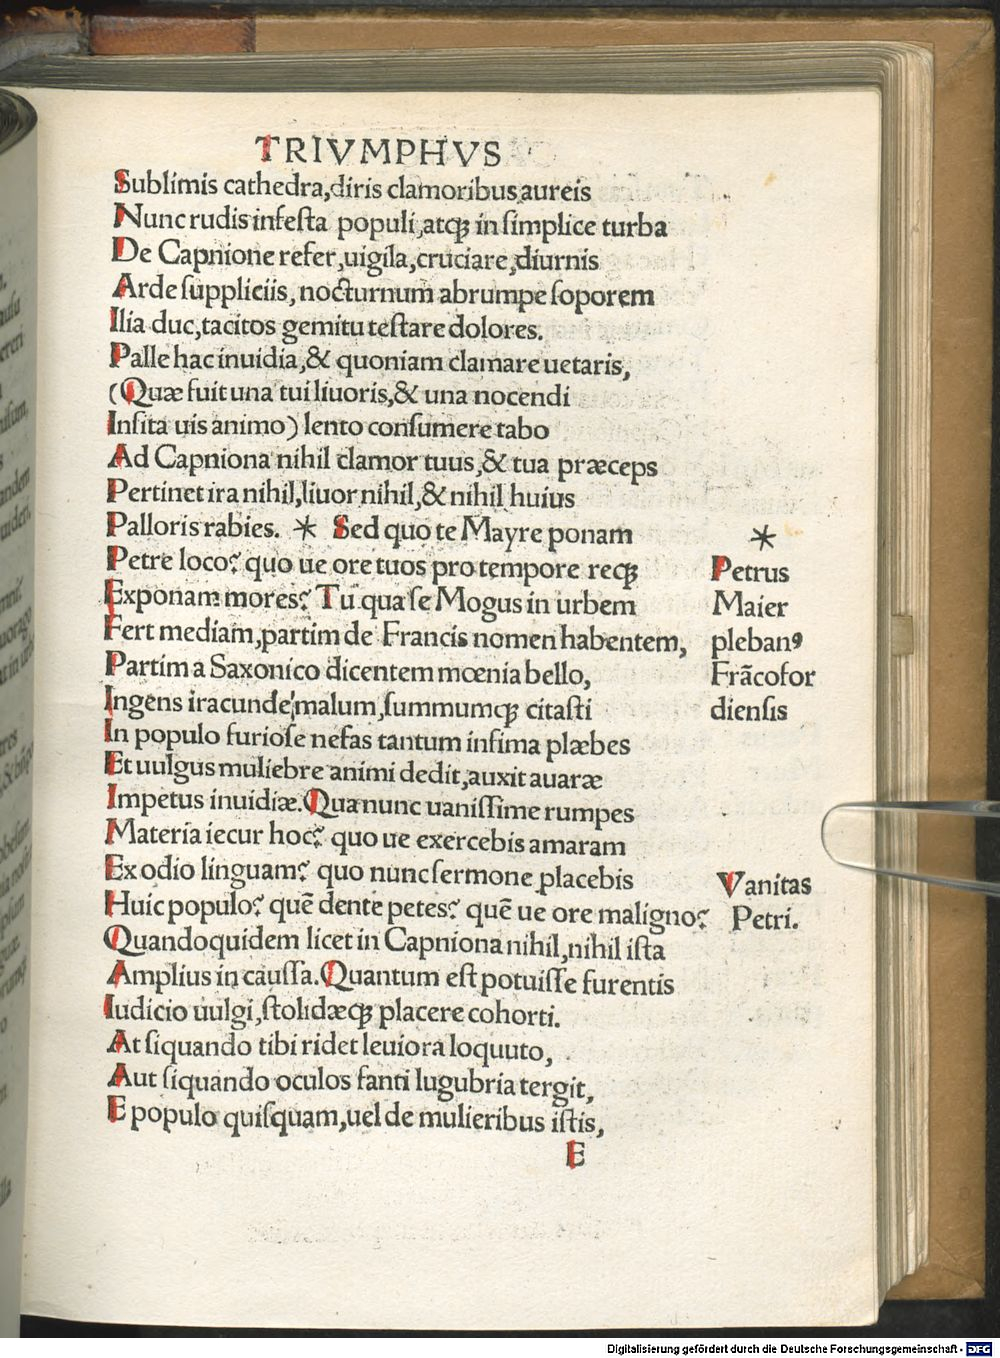 TRIVMPHVS
Sublimis cathedra,diris clamoribus aureis
Nunc rudis infesta populi,atqꝫ in simplice turba
De Capnione refer,uigila,cruciare,diurnis
Arde suppliciis,nocturnum abrumpe soporem
Ilia duc,tacitos gemitu testare dolores.
Palle hac inuidia,& quoniam clamare uetaris,
(Quæ fuit una tui liuoris,& una nocendi
Insita uis animo) lento consumere tabo
Ad Capniona nihil clamor tuus,& tua præceps
Pertinet ira nihil,liuor nihil,& nihil huius
Palloris rabies. * Sed quo te Mayre ponam
*
Petre loco? quo ue ore tuos pro tempore reqꝫ
Petrus
Exponam mores? Tu qua se Mogus in urbem
Maier
Fert mediam,partim de Francis nomen habentem,
plebanꝰ
Partim a Saxonico dicentem mœnia bello,
Frãcofor
Ingens iracunde,malum,summumqꝫ citasti
diensis
In populo furiose nefas tantum infima plæbes
Et uulgus muliebre animi dedit,auxit auaræ
Impetus inuidiæ.Qua nunc uanissime rumpes
Materia iecur hoc? quo ue exercebis amaram
Ex odio linguam? quo nunc sermone placebis
Vanitas
Huic populo? quẽ dente petes? quẽ ue ore maligno?
Petri.
Quandoquidem licet in Capniona nihil,nihil ista
Amplius in caussa.Quantum est potuisse furentis
Iudicio uulgi,stolidæqꝫ placere cohorti.
At siquando tibi ridet leuiora loquuto,
Aut siquando oculos fanti lugubria tergit,
E populo quisquam,uel de mulieribus istis,
E
Digitalisierung gefördert durch die Deutsche Forschungsgemeinschaft - DFG